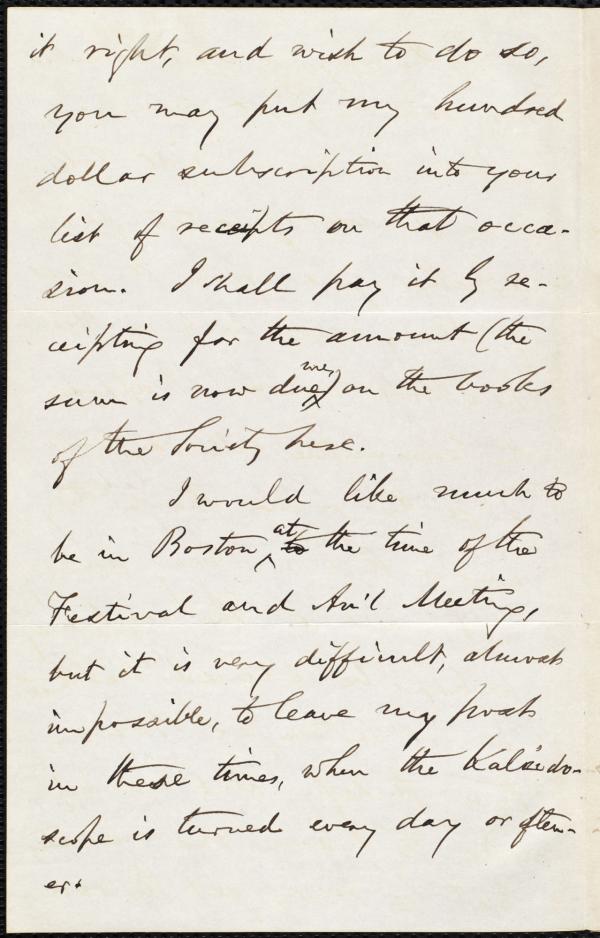 it right, and wish to do so,
you may put my hundred
dollar subscription into your
list of receipts on that occa-
sion. I shall pay it by re-
ceipting for the amount (the
sum is now due me) on the books
of the Society here.
I would like much to
be in Boston at the time of the
Festival and An'l Meeting,
but it is very difficult, almost
impossible, to leave my post
in these times, when the Kaleido-
scope is turned every day or often-
er.